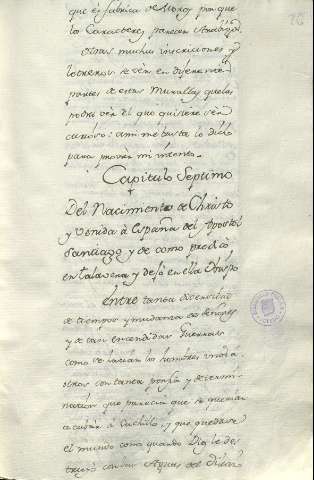 que es fabrica de Moros porque
los Caracteres parecen Arabigos
Otras muchas inscriciones y
letreros se vèn en diferentes
partes de estas Murallas que los
podrà vèr el que quisiere sèr
curioso: a mi me basta lo dicho
para provàr mi intento.
Capitulo Septimo
Del Nacimiento de Christo
y venida à España del Apostol
Santiago y de como predicò
en talavera y dejò en ella Obispo
entre tanta diversidad
de tiempos y mudanza de Señores
y de tan encendidas Guerras
como se hacian los hombres unos à
otros con tanta porfia y determi-
nacion que parecia que se querian
acabàr à Cuchillo, y que quedase
el mundo como quando Dios le des-
truyò con las Aguas del Diluvio